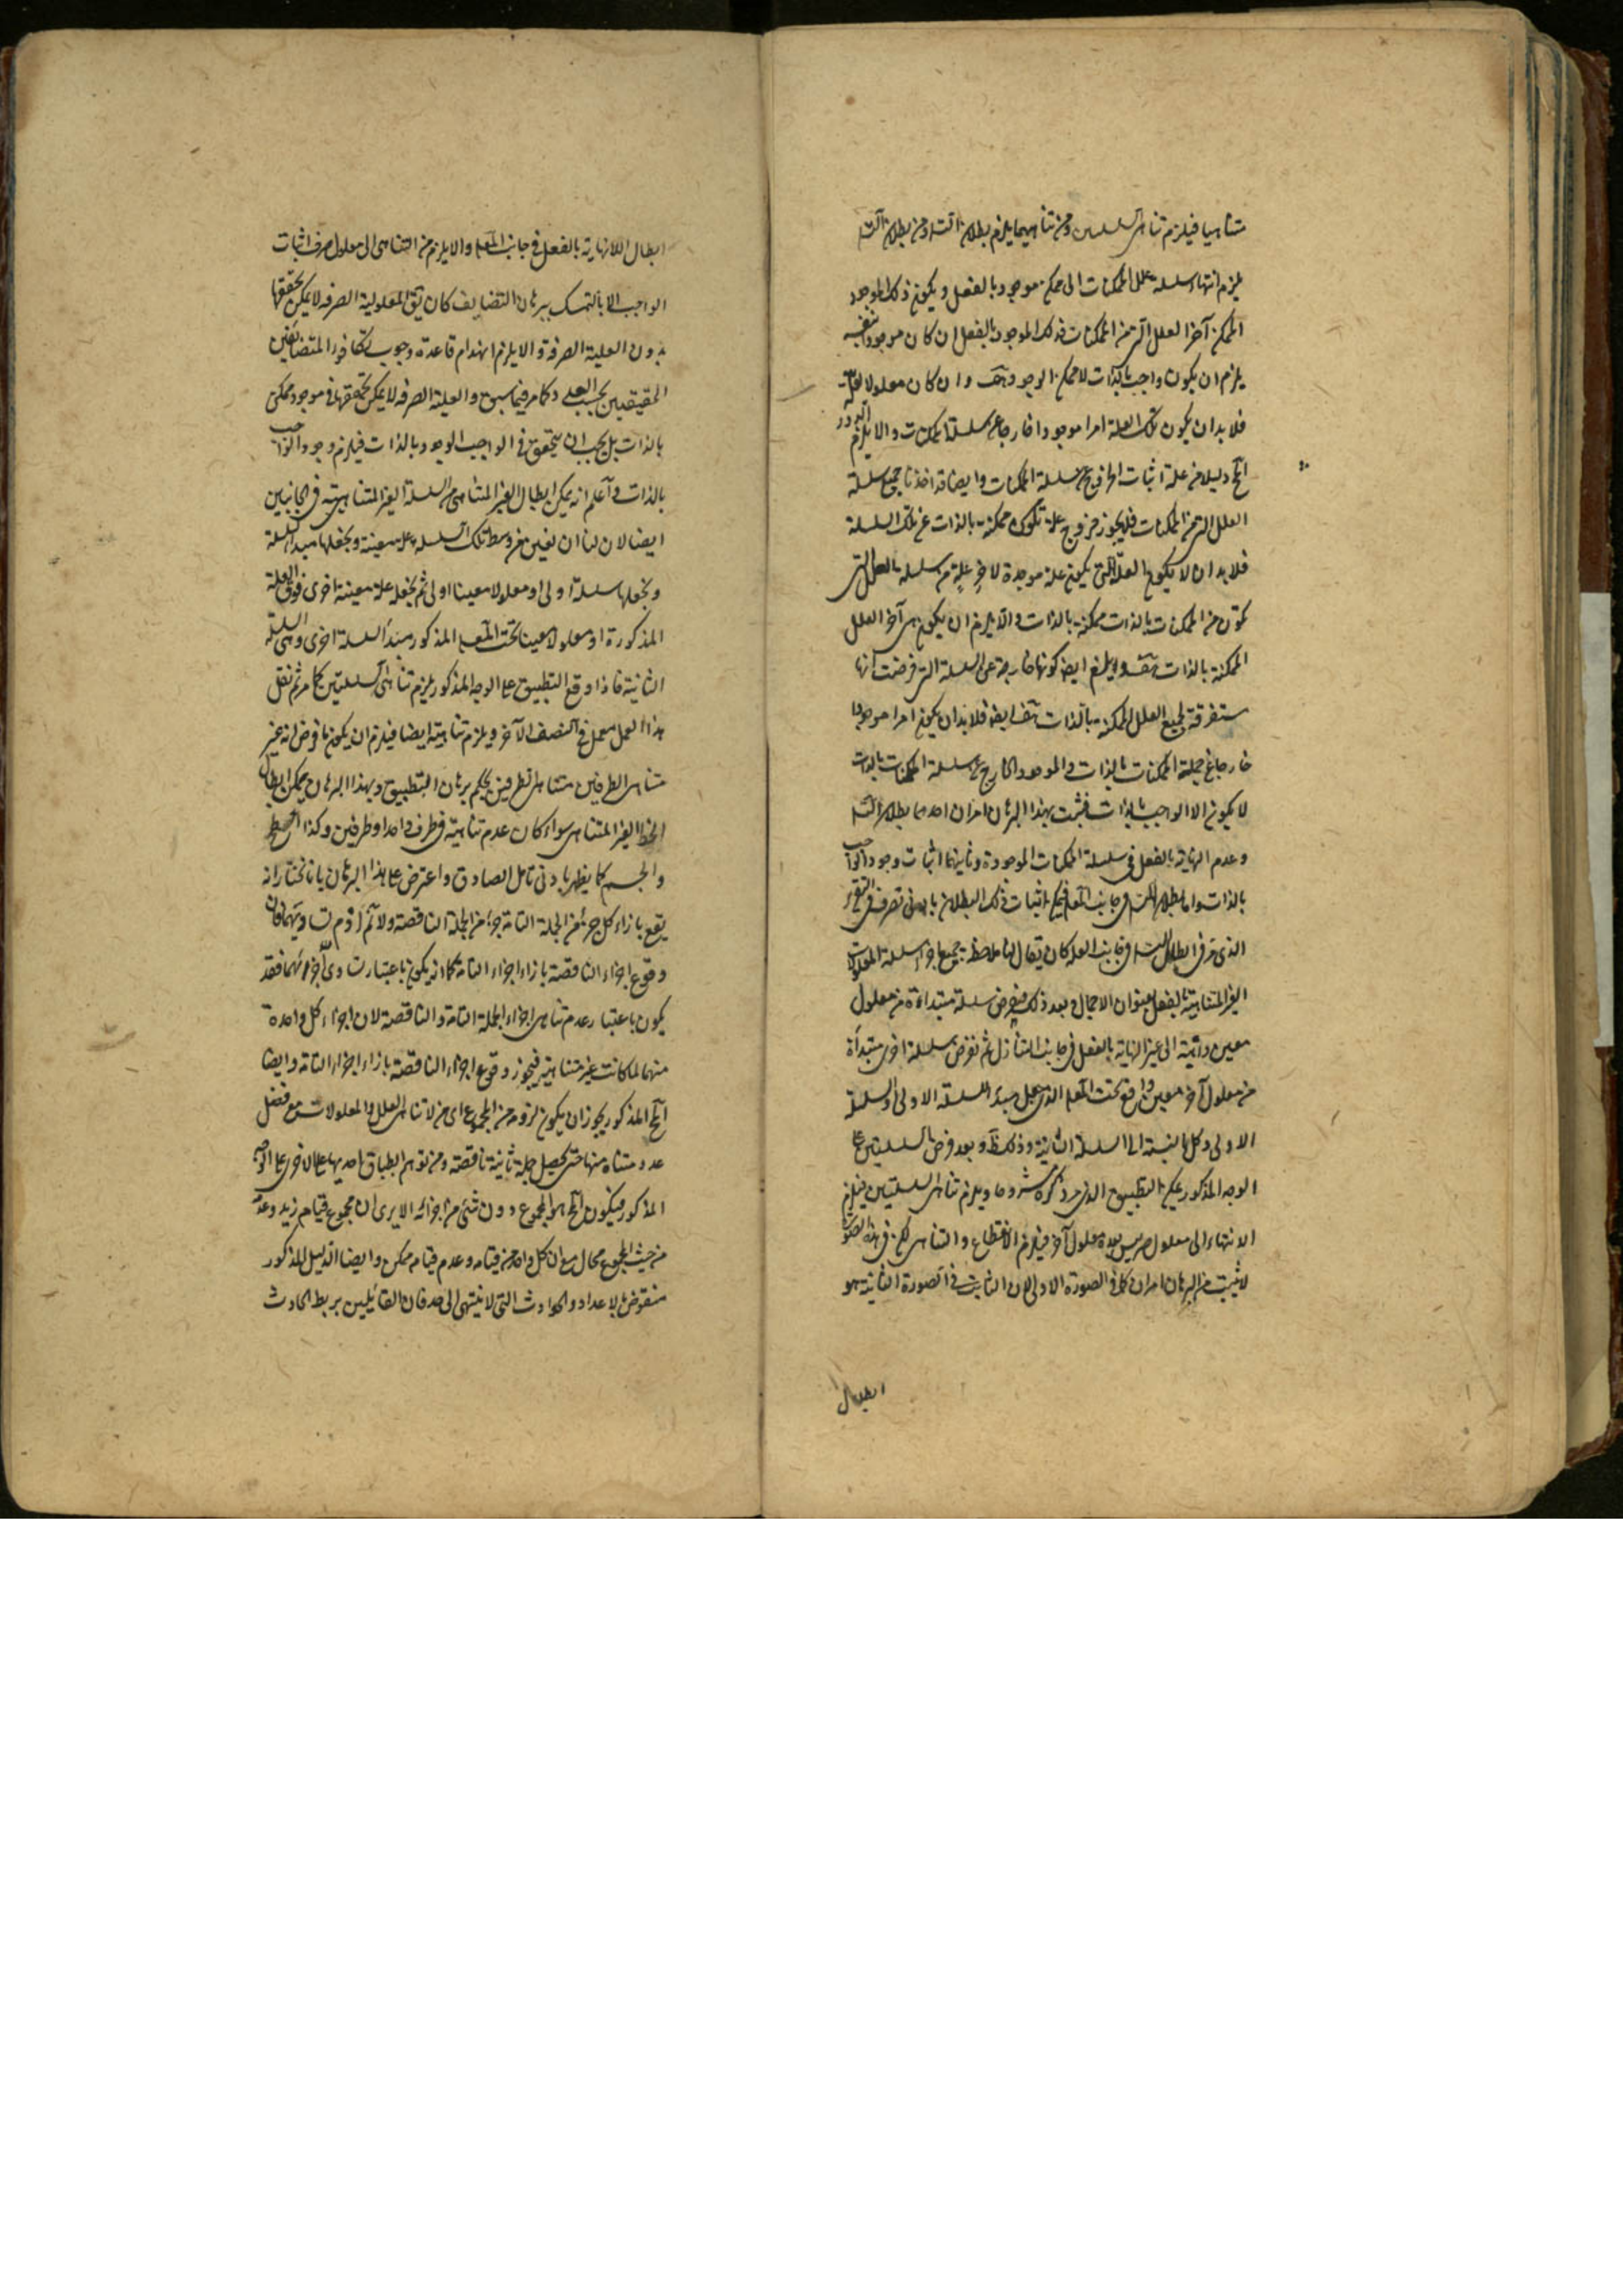 متناهيا فيلزم تناهى السلسلتين ومن تناهيهما يلزم بطلان التسـ ومن بطلان التسـ
يلزم انتهاء سلسلة علل الممكنات الى ممكن موجود بالفعل ويكون ذلك الموجود
الممكن آخر العلل التى من الممكنات فذلك الموجود بالفعل ان كان موجودا بنفسه
يلزم ان يكون واجبا بالذات لا ممكن الوجود هف وان كان معلولا لعلة
فلا بد ان يكون تلك العلة امرا موجودا خارجا عن سلسلة الممكنات والا يلزم الدور
دليلا من علة اثبات سلسلة الممكنات وايضا قد اخذنا جميع سلسلة
العلل التى من الممكنات فلا يجوز خروج علة تكون ممكنة بالذات عن تلك السلسلة
فلا بد ان لا يكون العلة التى يكون علة موجدة لآخر علة من سلسلة العلل التى
تكون من الممكنات بالذات ممكنة بالذات والا يلزم ان يكون هى آخر العلل
الممكنة بالذات هف ويلزم ايضا كونها خارجة عن السلسلة التى فرضت انها
مستغرقة لجميع العلل الممكنة بالذات هف ايضا فلا بد ان يكون امرا موجودا
خارجا عن جملة الممكنات بالذات والموجود الخارج عن سلسلة الممكنات بالذات
لا يكون الا الواجب بالذات فثبت بهذا البرهان امران احدهما بطلان التسـ
وعدم النهاية بالفعل فى سلسلة الممكنات الموجودة وثانيهما اثبات وجود الواجب
بالذات واما بطلان التسـ فى جانب المعلـ فيمكن اثبات ذلك البطلان بادنى تصرف فى التقرير
الذى مر فى ابطال التسـ فى جانب العلة كان يقال انا ملاحظة جميع اجزاء سلسلة المعلولات
الغير المتناهية بالفعل بعنوان الاجمال وبعد ذلك نفرض سلسلة مبتداءة من معلول
معين ذاهبة الى غير النهاية بالفعل فى جانب التنازل ثم نفرض سلسلة اخرى مبتدأة
من معلول آخر معين واقع تحت المعلـ الذى جعل مبدأ السلسلة الاولى والسلسلة
الاولى وكل بالنسبة الى السلسلة الثانية وذلك ظ وبعد فرض السلسلتين على
الوجه المذكور يمكن التطبيق الذى مر ذكره مشروحا ويلزم تناهى السلسلتين فيلزم
الانتهاء الى معلول صرف ليس بعده معلول آخر فيلزم الانقطاع والتناهى لكن فى هذه الصورة
لا يثبت من البرهان امران كما فى الصورة الاولى لان الثابت فى الصورة الثانية هو
ابطال
ابطال اللانهاية بالفعل فى جانب المعلـ والا يلزم من التناهى الى معلول صرف اثبات
الواجب الا بالتمسك ببرهان التضايف كان يق المعلولية الصرفه لا يمكن تحققها
بدون العلية الصرفة والا يلزم انهدام قاعدة وجوب تكافؤ المتضائفين
الحقيقيين بحسب العدد كما مر فيما سبق والعلية الصرفه لا يمكن تحققها فى موجود ممكن
بالذات بل يجب ان يتحقق فى الواجب الوجود بالذات فيلزم وجود الواجب
بالذات واعلم انه يمكن ابطال الغير المتناهى من السلسلة الغير المتناهية فى الجانبين
ايضا لان لنا ان نعين من وسط تلك السلسلة علة معينة ونجعلها مبدأ السلسلة
ونجعلها سلسلة اولى او معلولا معينا اولى ثم نجعل علة معينة اخرى فوق العلة
المذكورة او معلولا معينا تحت المعلـ المذكور مبدأ السلسلة اخرى وهى السلسلة
الثانية فاذا وقع التطبيق على الوجه المذكور يلزم تناهى السلسلتين كما مر ثم نقل
هذا العمل معمل فى النصف الآخر ويلزم تناهيه ايضا فيلزم ان يكون ما فرض انه غير
متناهى الطرفين متناهى الطرفين بحكم برهان التطبيق وبهذا البرهان يمكن ابطال
الخط الغير المتناهى سواء كان عدم تناهيه فى طرف واحد او طرفين وكذا السطح
والجسم كما يظهر بادنى تامل الصادق واعترض على هذا البرهان بانا نختار انه
يقع بازاء كل جزء من الجملة التامة جزء من الجملة الناقصة ولا نم لزوم تساويهما فان
وقوع اجزاء الناقصة بازاء اجزاء التامة كما انه يكون باعتبار تساوى اجزائهما فقد
يكون باعتبار عدم تناهى اجزاء الجملة التامة والناقصة لان اجزاء كل واحدة
منهما لما كانت غير متناهية فيجوز وقوع اجزاء الناقصة بازاء اجزاء التامة وايضا
المذكور يجوز ان يكون لزومه من المجموع اى من لا تناهى العلل والمعلولات مع فصل
عدد متناه منها حتى يحصل جملة ثانية ناقصة ومن توهم انطباق احديهما على الاخرى على الوجه
المذكور فيكون المح هو المجموع دون شئ من اجزائه الا يرى ان مجموع قيام زيد وعدمه
من حيث المجموع محال مع ان كل واحد من قيامه وعدم قيامه ممكن وايضا الدليل المذكور
منقوض بالاعداد والحوادث التى لا ينتهى الى حد فان القائلين بربط الحادث